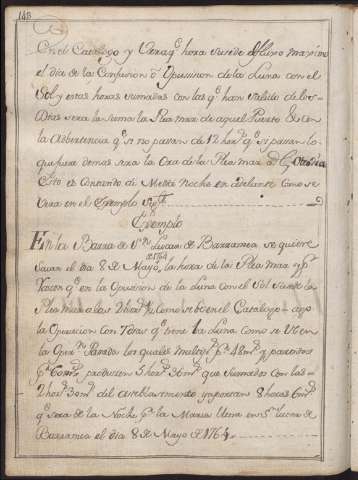 148
en el Catalogo y Vera qᵉ hora susede el fluxo maximo
el dia de la Conjusion o Opusision de la Luna con el
Sol y estas horas sumadas con las qᵉ han salido de los
Dias sera la suma la Plea mar de aquel Puerto &c con
la Adbertencia qᵉ si no pasan de 12 horˢ qᵉ si pasan lo
que fuere demas sera la Ora de la Plea mar de Otro dia
Esto es Contando de Media Noche en adelante como se
Vera en el Exemplo
Exemplo
En la Barra de Sⁿ Lucar de Barramea se quiere
de 1764
Sacar el dia 8 de Mayo, la hora de la Plea mar y pᵒ
qᵉ en la Opusision de la Luna con el Sol susede la
Plea mar a las 2 horˢ como se be en el Catalogo
la Oposicion con 7 dias qᵉ tiene la Luna como se Ve en
la Oprⁿ Pasada los quales multipˢ pʳ 48 mˢ y partidos
pʳ 60 mˢ producen 5 horˢ 36 mˢ que sumados con las
2 horˢ 30 mˢ del establesimiento ymportan 8 horas 6 mˢ
qᵉ sera de la Noche la Marea Llena en Sⁿ Lucar de
Barramea el dia 8 de Mayo de 1764